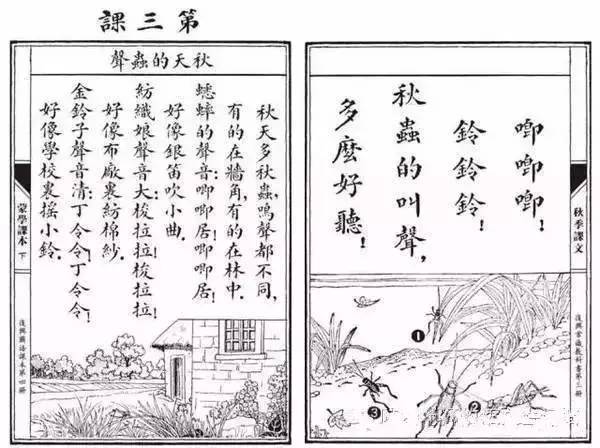 第三課
唧唧唧！
鈴鈴鈴！
秋蟲的叫聲，
多麼好聽！
秋季課文
復興常識教科書第三冊
❶
❷
❸
秋天的蟲聲
秋天多秋蟲，鳴聲都不同，
有的在牆角，有的在林中．
蟋蟀的聲音：唧唧居！唧唧居！
好像銀笛吹小曲．
紡織娘聲音大：梭拉拉！梭拉拉！
好像布廠裏紡棉紗．
金鈴子聲音清：丁令令！丁令令！
好像學校裏搖小鈴．
蒙學課本 下
復興國語課本第四冊